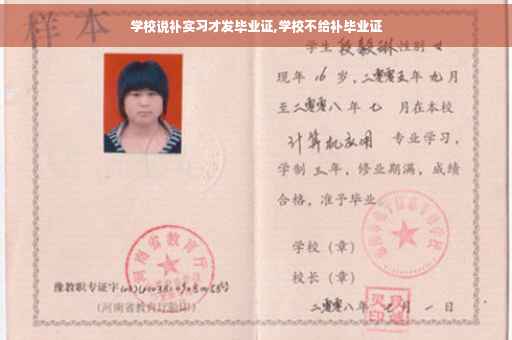 学校说补实习才发毕业证,学校不给补毕业证
样本
学生 性别 女
现年 16 岁，二零零五年 九月
至二零零八年 七 月在本校
计算机应用 专业学习，
学制 三年，修业期满，成绩
合格，准予毕业
学校（章）
校长（章）
二零零八年 七月 一日
河南省教育厅
豫教职专证字
(河南省教育厅验印)